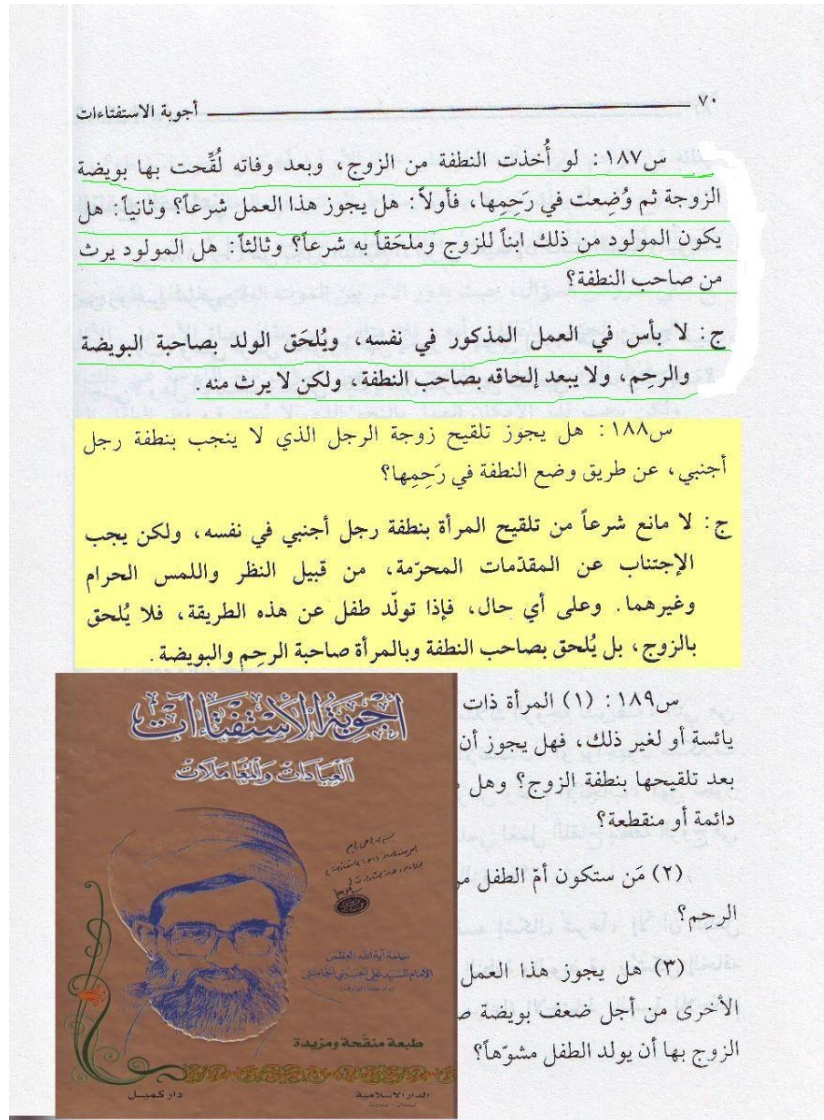 ٧٠
أجوبة الاستفتاءات
س١٨٧: لو أُخذت النطفة من الزوج، وبعد وفاته لُقِّحت بها بويضة
الزوجة ثم وُضِعت في رَحِمِها، فأولاً: هل يجوز هذا العمل شرعاً؟ وثانياً: هل
يكون المولود من ذلك ابناً للزوج وملحَقاً به شرعاً؟ وثالثاً: هل المولود يرث
من صاحب النطفة؟
ج: لا بأس في العمل المذكور في نفسه، ويُلحَق الولد بصاحبة البويضة
والرحِم، ولا يبعد إلحاقه بصاحب النطفة، ولكن لا يرث منه.
س١٨٨: هل يجوز تلقيح زوجة الرجل الذي لا ينجب بنطفة رجل
أجنبي، عن طريق وضع النطفة في رَحِمِها؟
ج: لا مانع شرعاً من تلقيح المرأة بنطفة رجل أجنبي في نفسه، ولكن يجب
الإجتناب عن المقدّمات المحرّمة، من قبيل النظر واللمس الحرام
وغيرهما. وعلى أي حال، فإذا تولّد طفل عن هذه الطريقة، فلا يُلحق
بالزوج، بل يُلحق بصاحب النطفة وبالمرأة صاحبة الرحِم والبويضة.
س١٨٩: (١) المرأة ذات
يائسة أو لغير ذلك، فهل يجوز أن
بعد تلقيحها بنطفة الزوج؟ وهل
دائمة أو منقطعة؟
(٢) مَن ستكون أمّ الطفل
الرحم؟
(٣) هل يجوز هذا العمل
الأخرى من أجل ضعف بويضة
الزوج بها أن يولد الطفل مشوّهاً؟
أجوبة الاستفتاآت
العبادات والمعاملات
سماحة آية الله العظمى
الإمام السيد علي الحسيني الخامنئي
طبعة منقحة ومزيدة
الدار الاسلامية
دار كميل